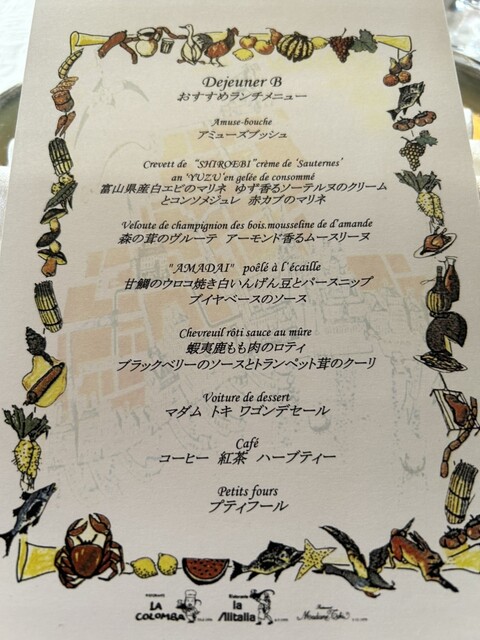 Dejeuner B
おすすめランチメニュー
Amuse-bouche
アミューズブッシュ
Crevett de "SHIROEBI" crème de 'Sauternes'
an 'YUZU' en gelée de consommé
富山県産白エビのマリネ ゆず香るソーテルヌのクリーム
とコンソメジュレ 赤カブのマリネ
Veloute de champignion des bois.mousseline de d'amande
森の茸のヴルーテ アーモンド香るムースリーヌ
"AMADAI" poêlé à l'écaille
甘鯛のウロコ焼き白いんげん豆とパースニップ
ブイヤベースのソース
Chevreuil rôti sauce au mûre
蝦夷鹿もも肉のロティ
ブラックベリーのソースとトランペット茸のクーリ
Voiture de dessert
マダム トキ ワゴンデセール
Café
コーヒー 紅茶 ハーブティー
Petits fours
プティフール
LA COLOMBA
la Alitalia
Madame Toki